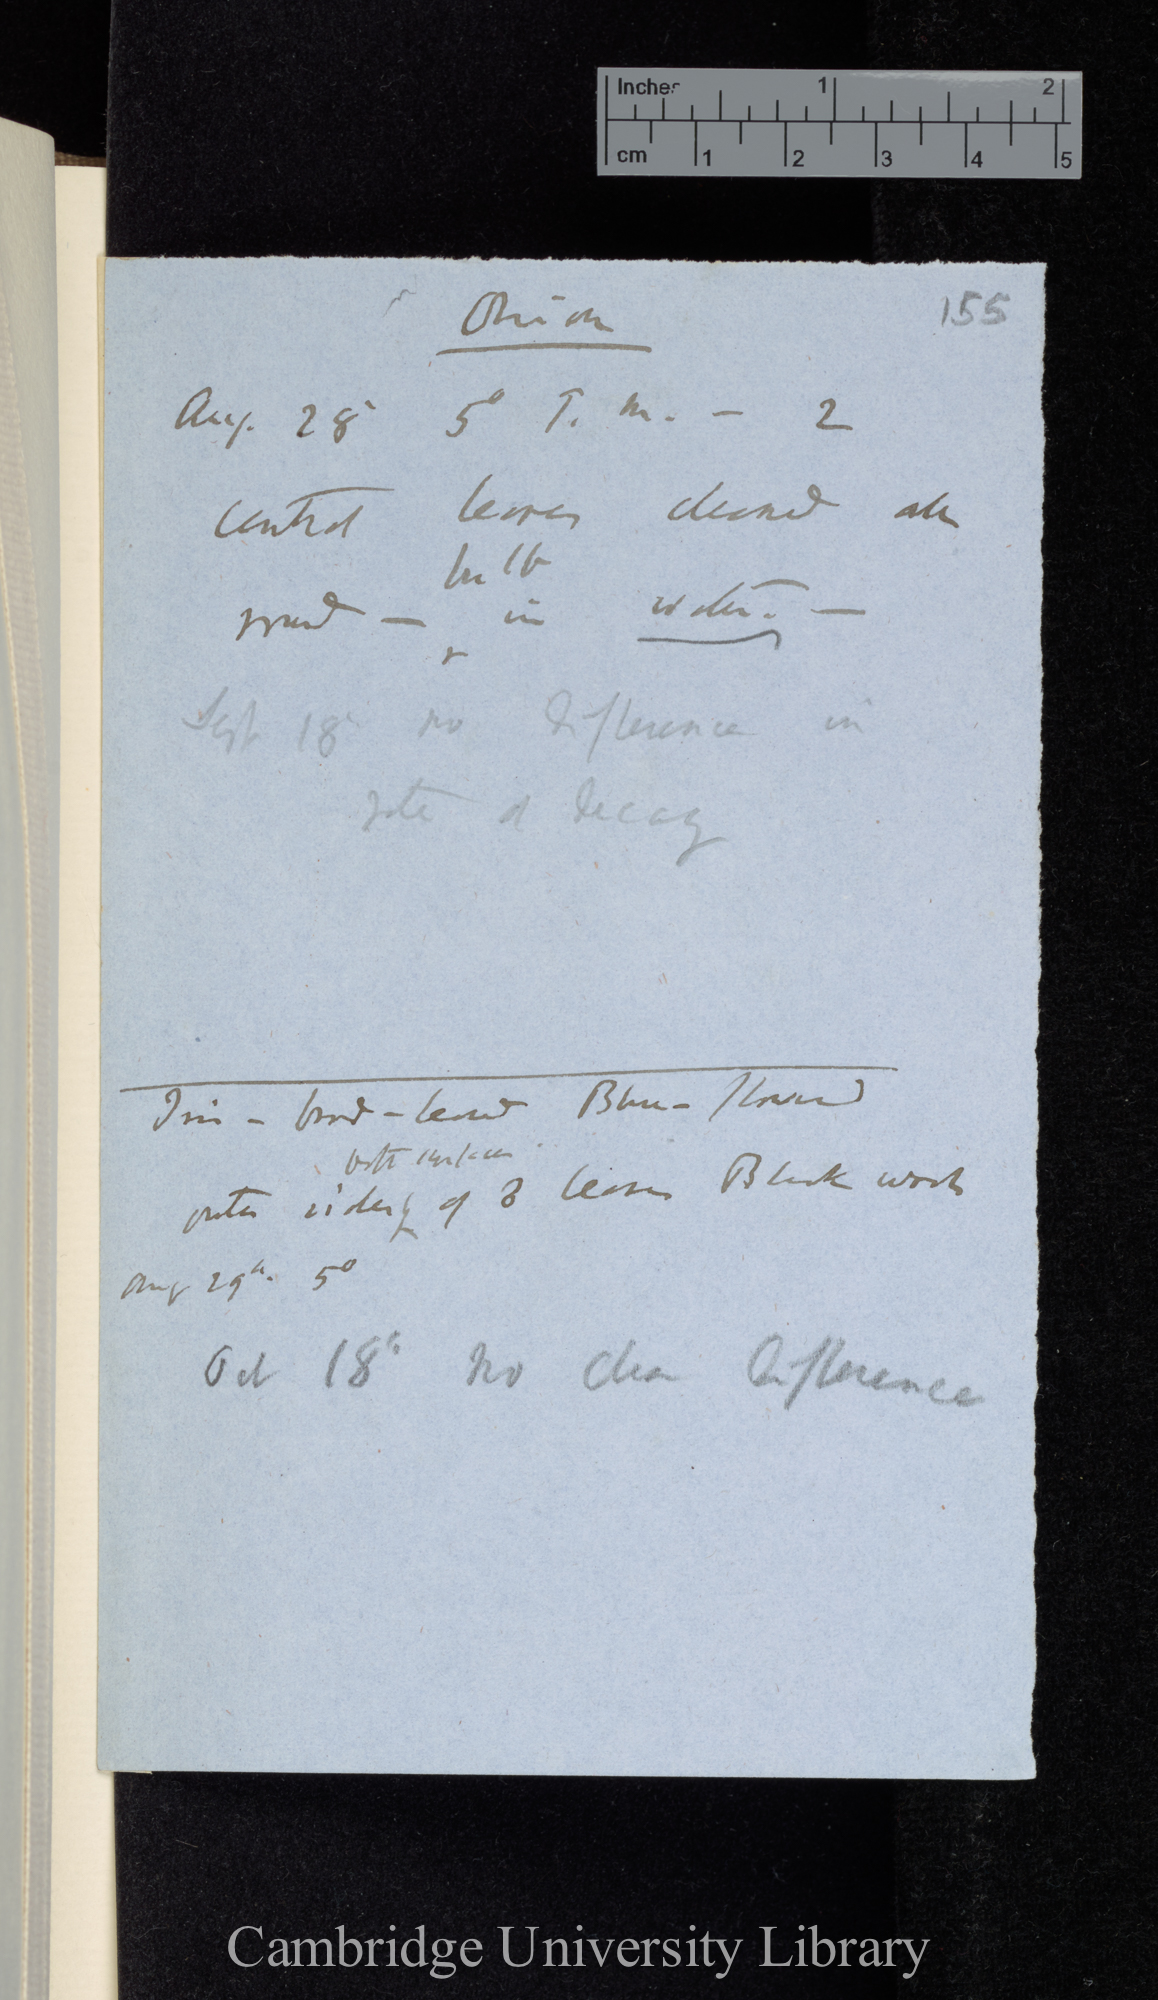 Inches 1 2
cm 1 2 3 4 5
155
Onion
Aug. 28 5° T. M. — 2
central leaves cleaned all
round — bulb in water. —
Sept 18 no difference in
rate of decay
Iris - broad-leaved Blue-flowered
both surfaces
outer sides of 3 leaves Black wool
Aug 29th. 5°
Oct 18th no clear difference
Cambridge University Library